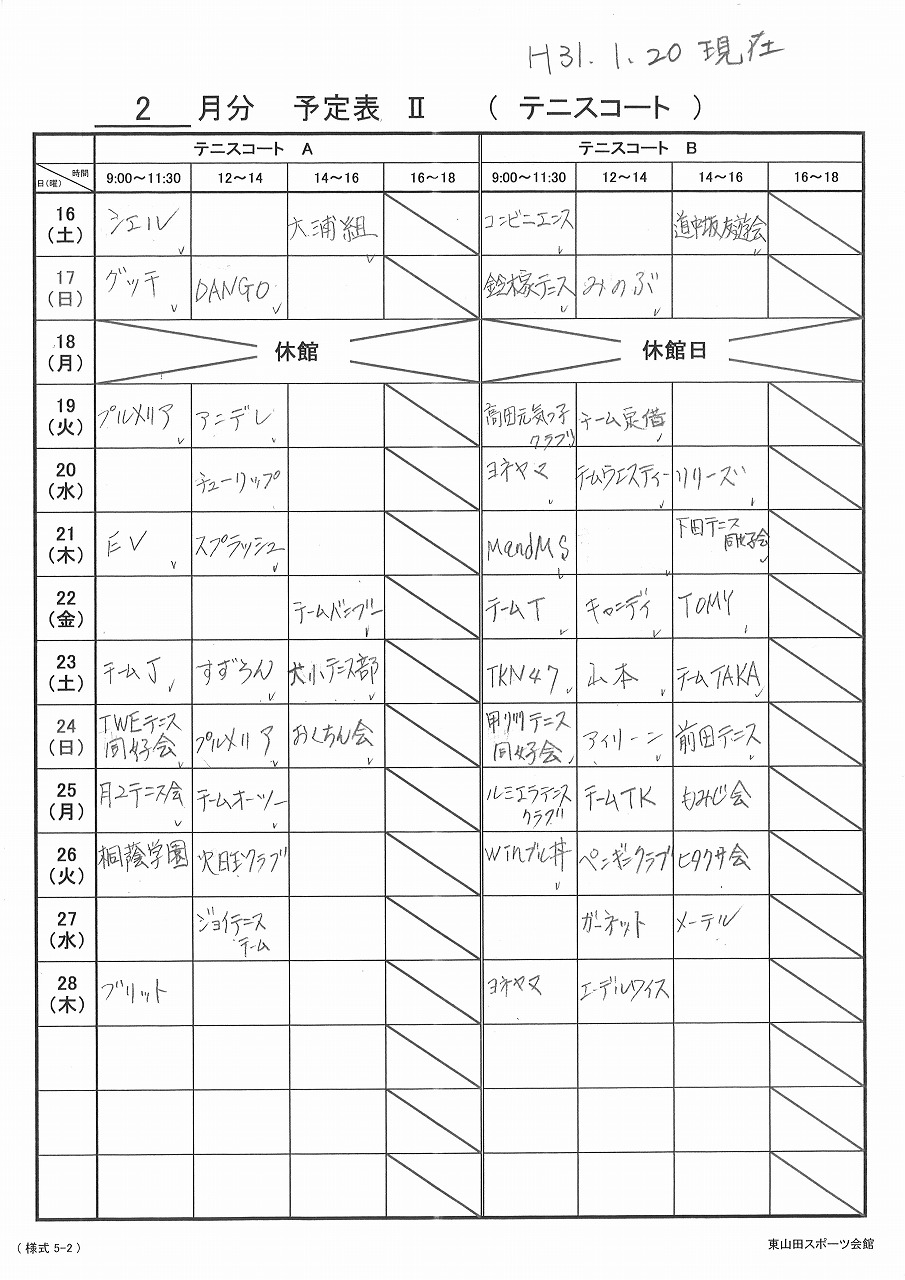 H31.1.20 現在
2 月分 予定表 Ⅱ ( テニスコート )
テニスコート A テニスコート B
時間
日(曜) 9:00～11:30 12～14 14～16 16～18 9:00～11:30 12～14 14～16 16～18
16
(土) シエル 大浦組 コンビニエンス 道中坂友遊会
17
(日) グッチ DANGO 鈴木家テニス みのぶ
18
(月) 休館 休館日
19
(火) プルメリア アニデレ 高田元気っ子
クラブ チーム
20
(水) チューリップ ヨネヤマ チームウエスティー リリーズ
21
(木) EV スプラッシュ MandMS 下田テニス
同好会
22
(金) チームバンブー チームT キャンディ TOMY
23
(土) チームJ すずらん 大小テニス部 TKN47 山本 チームTAKA
24
(日) IWEテニス
同好会 プルメリア おくちん会 テニス
同好会 アイリーン 前田テニス
25
(月) 月2テニス会 チームオーツー ルミエラテニス
クラブ チームTK もみじ会
26
(火) 桐蔭学園 火日玉クラブ Winブル丼 ペンギンクラブ ヒタクサ会
27
(水) ジョイテニス
チーム ガーネット メーテル
28
(木) ブリット ヨネヤマ エーデルワイス
( 様式 5-2 ) 東山田スポーツ会館